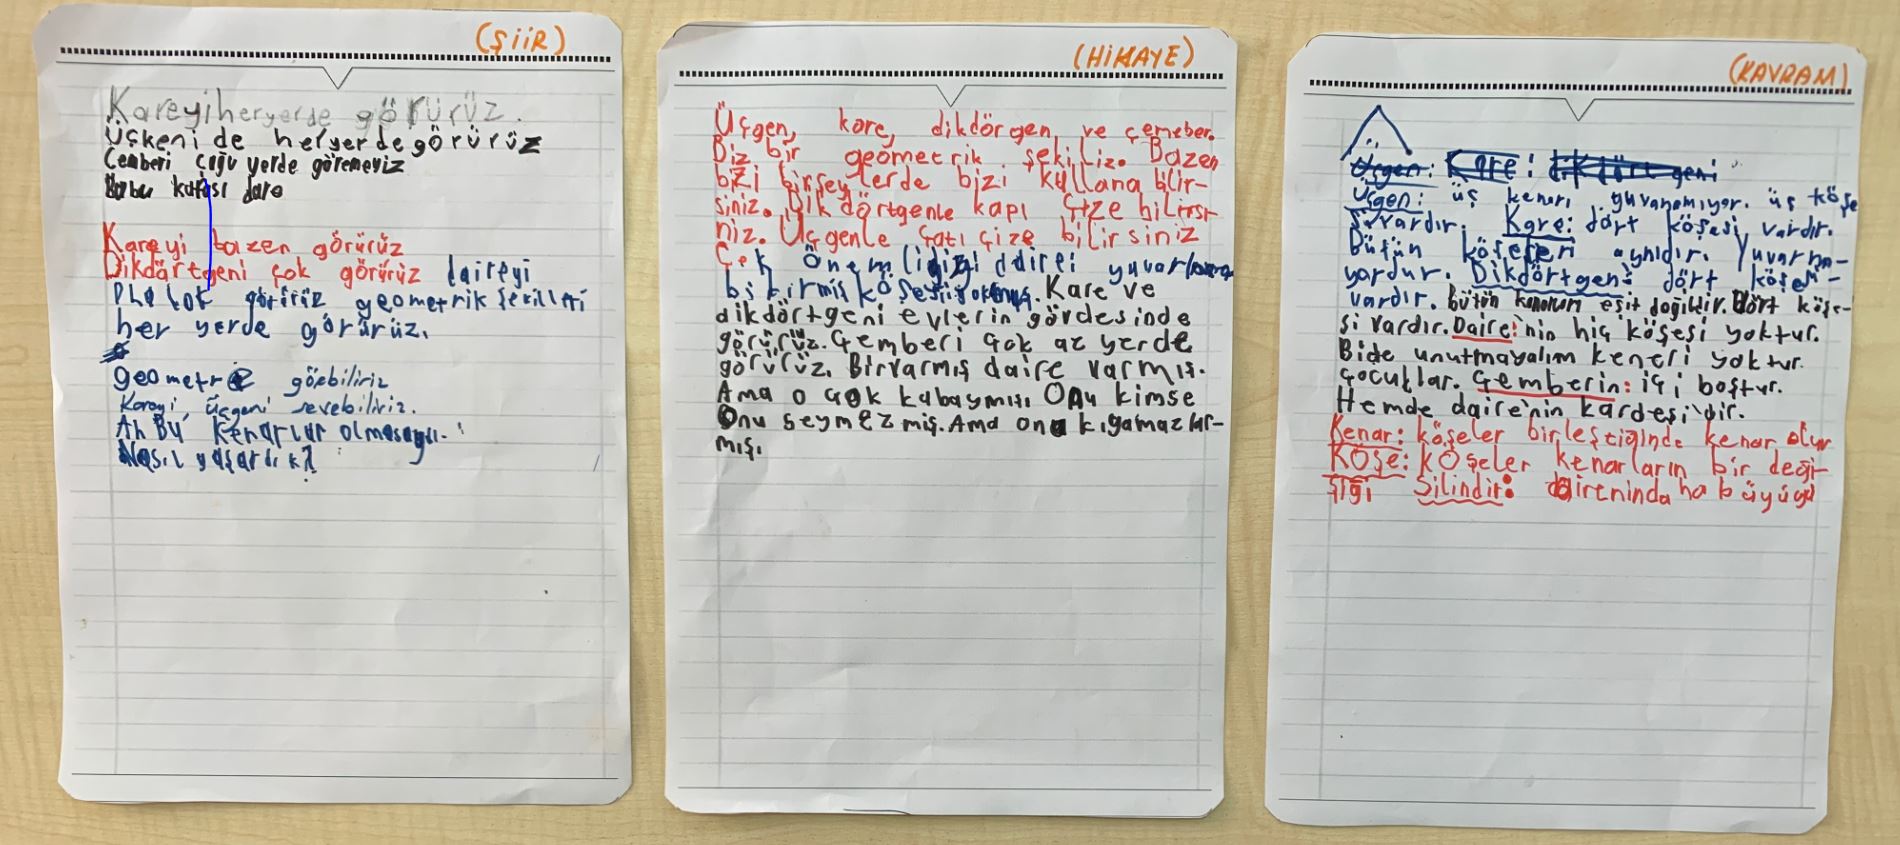 (ŞİİR)
Kareyi heryerde görürüz.
Üçkeni de heryerde görürüz
Çemberi çoğu yerde göremeyiz
kafası dare
Kareyi bazen görürüz
Dikdörtgeni çok görürüz daireyi
görürüz geometrik şekilleri
her yerde görürüz.
geometr görebiliriz
Kareyi, üçgeni sevebiliriz.
Ah Bu kenarlar olmasaydı.
Nasıl yaşardık?
(HİKAYE)
Üçgen, kare, dikdörgen, ve çemeber.
Biz bir geometrik şekiliz. Bazen
bizi birşeylerde bizi kullana bilir-
siniz. Dikdörtgenle kapı çize bilirsi
niz. Üçgenle çatı çize bilirsiniz
Çok önemli daire
Kare ve
dikdörtgeni evlerin gövdesinde
görürüz. Çemberi çok az yerde
görürüz. Birvarmış daire varmış.
Ama o çok kabaymış. Onu kimse
Onu seymezmiş. Ama ona kıyamazlar-
mış.
(KAVRAM)
Üçgen: Kare:
Üçgen: üç kenarı yuvanamıyor. üç köşe
si vardır. Kare: dört köşesi vardır.
Bütün köşeleri aynıdır. Yuvarla-
yordur. Dikdörtgen: dört köşesi
vardır. bütün kenarları eşit değildir. Dört köşe-
si vardır. Daire'nin hiç köşesi yoktur.
Bide unutmayalım keneri yoktur.
çocuklar. Çemberin: içi boştur.
Hemde daire'nin kardeşi'dir.
Kenar: köşeler birleştiğinde kenar olur
Köşe: köşeler kenarların bir deği-
şiği Silindir: daireninda ha büyüğü